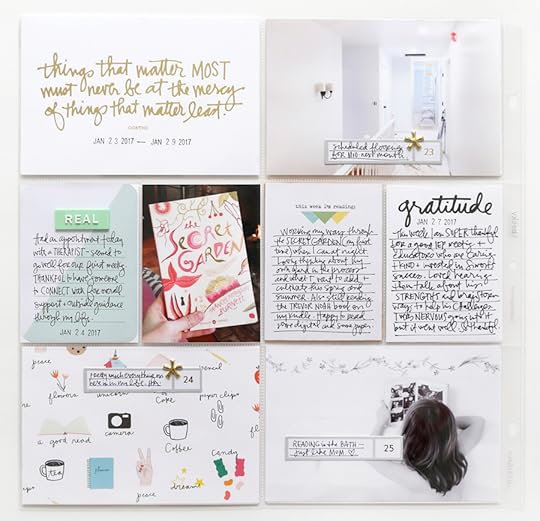 things that matter MOST
must never be at the mercy
of things that matter least.
GOETHE
JAN 23 2017 — JAN 29 2017
scheduled flooring
FOR MID-next month.
23
REAL
had an appointment today
with a THERAPIST - seemed to
go well for our first meeting
THANKFUL to have someone
to CONNECT with for overall
support + outside guidance
through my life.
JAN 24 2017
the
SECRET
GARDEN
BURNETT
this week I'm reading:
Working my way through
the SECRET GARDEN for first
time when I can at night.
I love thinking about
and what I want to add +
cultivate this spring and
summer. Also still reading
the TREVOR NOAH book on
my kindle. Happy to read
some digital and some paper.
gratitude
JAN 27 2017
This week I am SUPER thankful
for a good IEP meeting +
educators who are caring
+ KIND + invested in
success.
then talk about his
STRENGTHS and
ways to help his challenges.
I was NERVOUS going into it
but it went well. So thankful.
pretty much everything on
here is in my life. Ha.
24
flowers
unicorn
Coke
paper clips
peace
a good read
camera
Coffee
Candy
tea
planner
peace
dream
READING in the BATH —
just like MOM. ♡
25